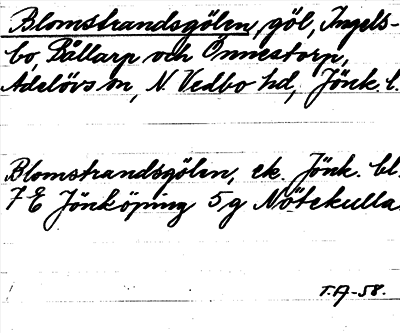 Blomstrandsgölen, göl, Ingels-
bo, Bållarp och Önnestorp,
Adelövs sn, N. Vedbo hd, Jönk. l.
Blomstrandsgölen, ek. Jönk. bl.
7 E Jönköping 5 g Nötekulla
T.A-58.